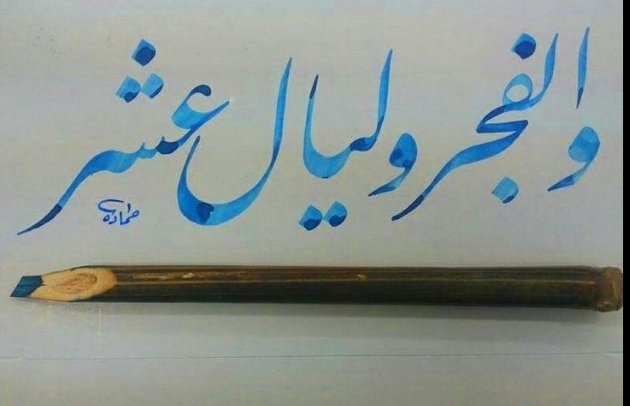 والفجر وليال عشر
حماده